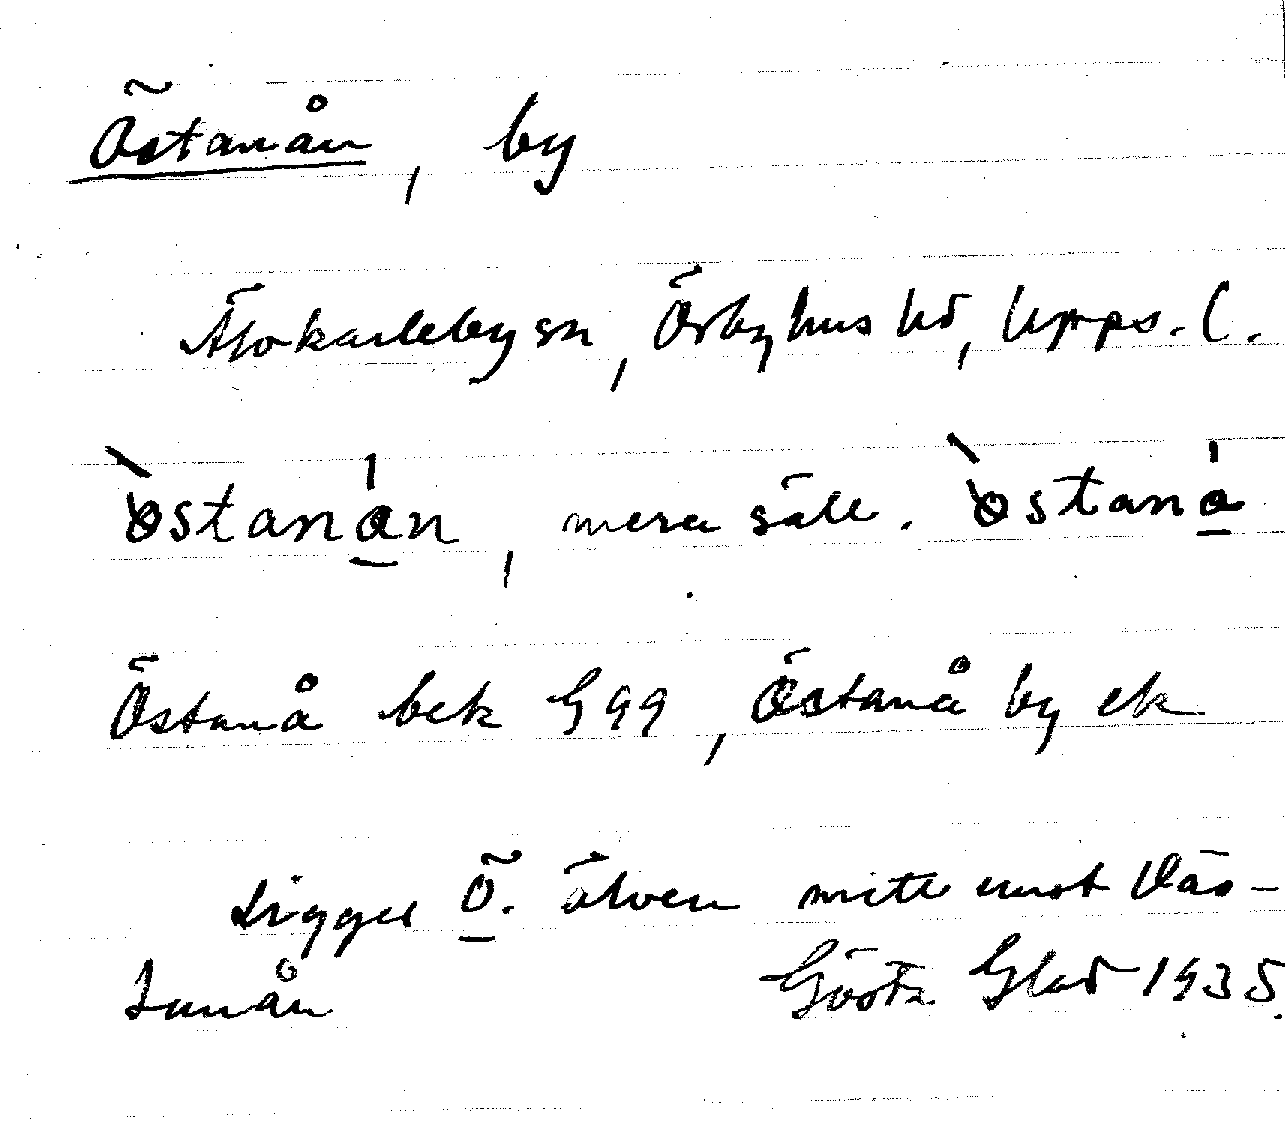 Östanån, by
Älvkarleby sn, Örbyhus hd, Upps. l.
òstanán, mera säll. òstaná
Östanå bek G 99, Östanå by ek
Ligger Ö. älven mitt emot Väs-
tanån Gösta Glad 1935.